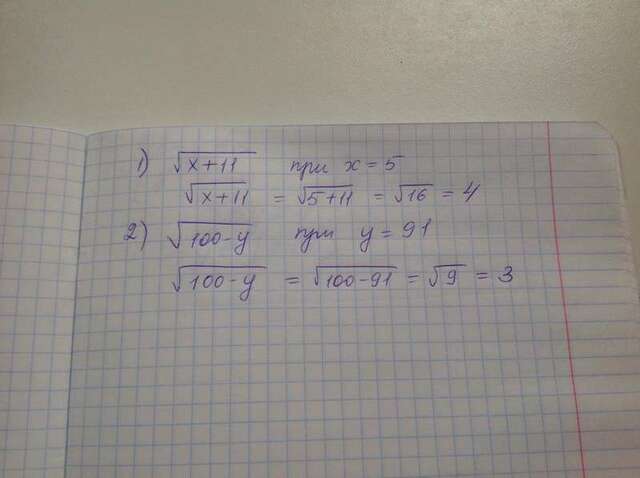 1) √x+11 при x=5
√x+11 = √5+11 = √16 = 4
2) √100-y при y=91
√100-y = √100-91 = √9 = 3